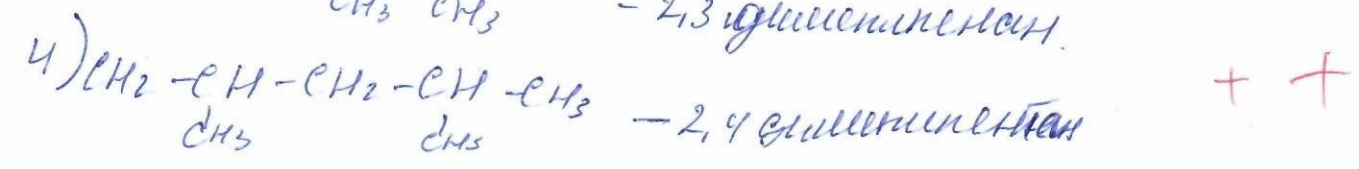 CH3 CH3 - 2,3 диметилпенан.
4) CH2 - CH - CH2 - CH - CH3 - 2,4 диметилпентан + +
CH3 CH3